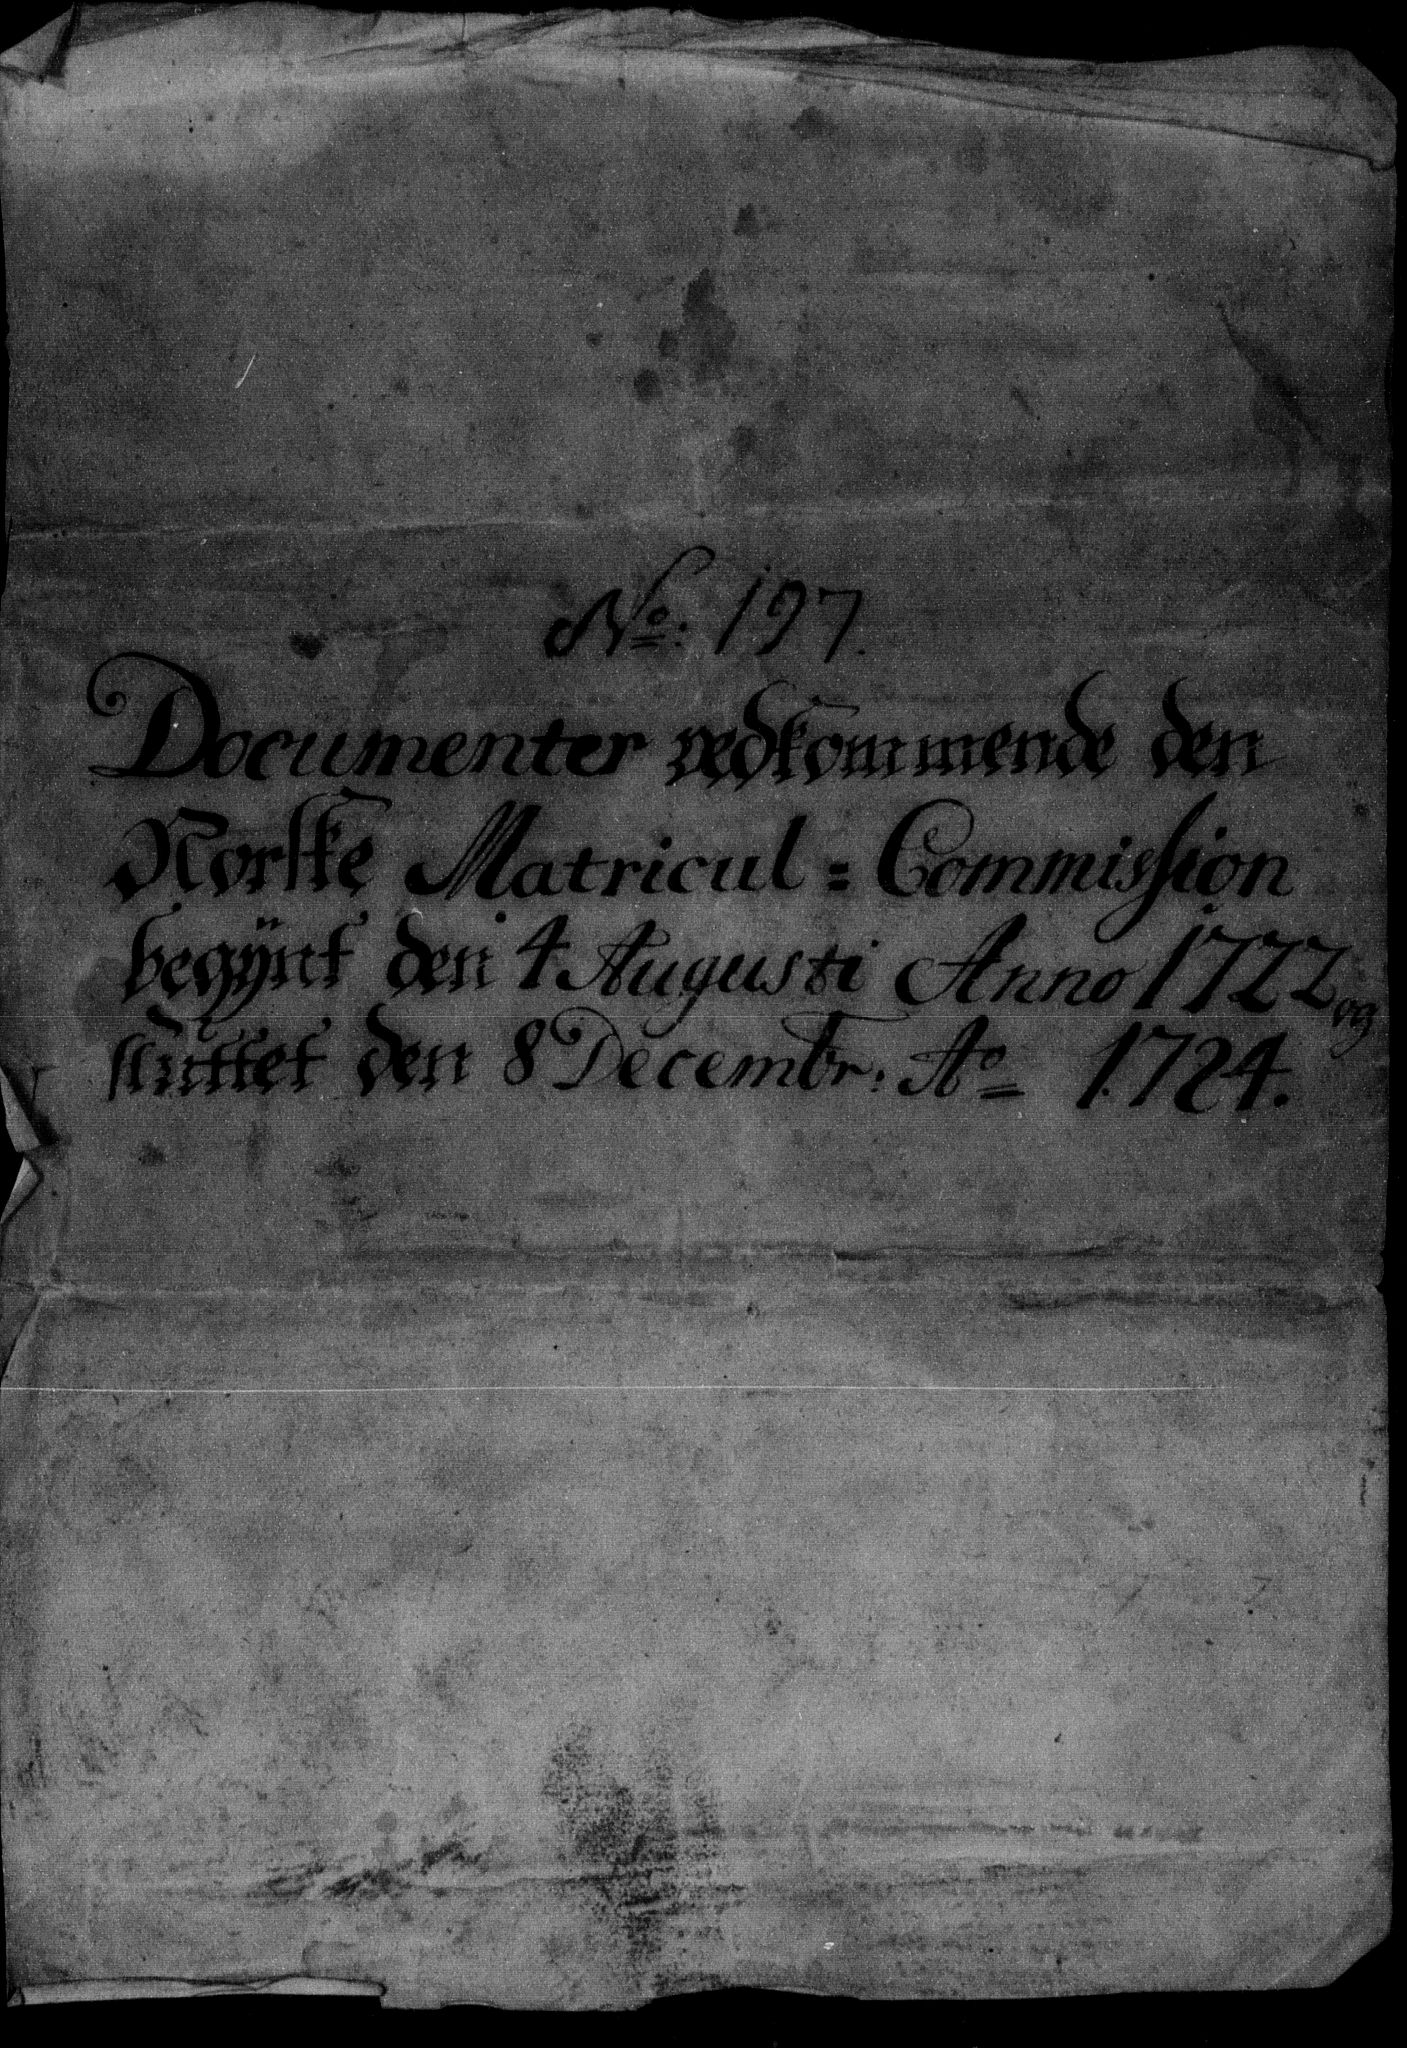 No: 197.
Documenter vedkommende den
Norske Matricul = Commission
begÿnt den 4 Augusti Anno 1722 og
sluttet den 8 Decembr: Ao 1724.